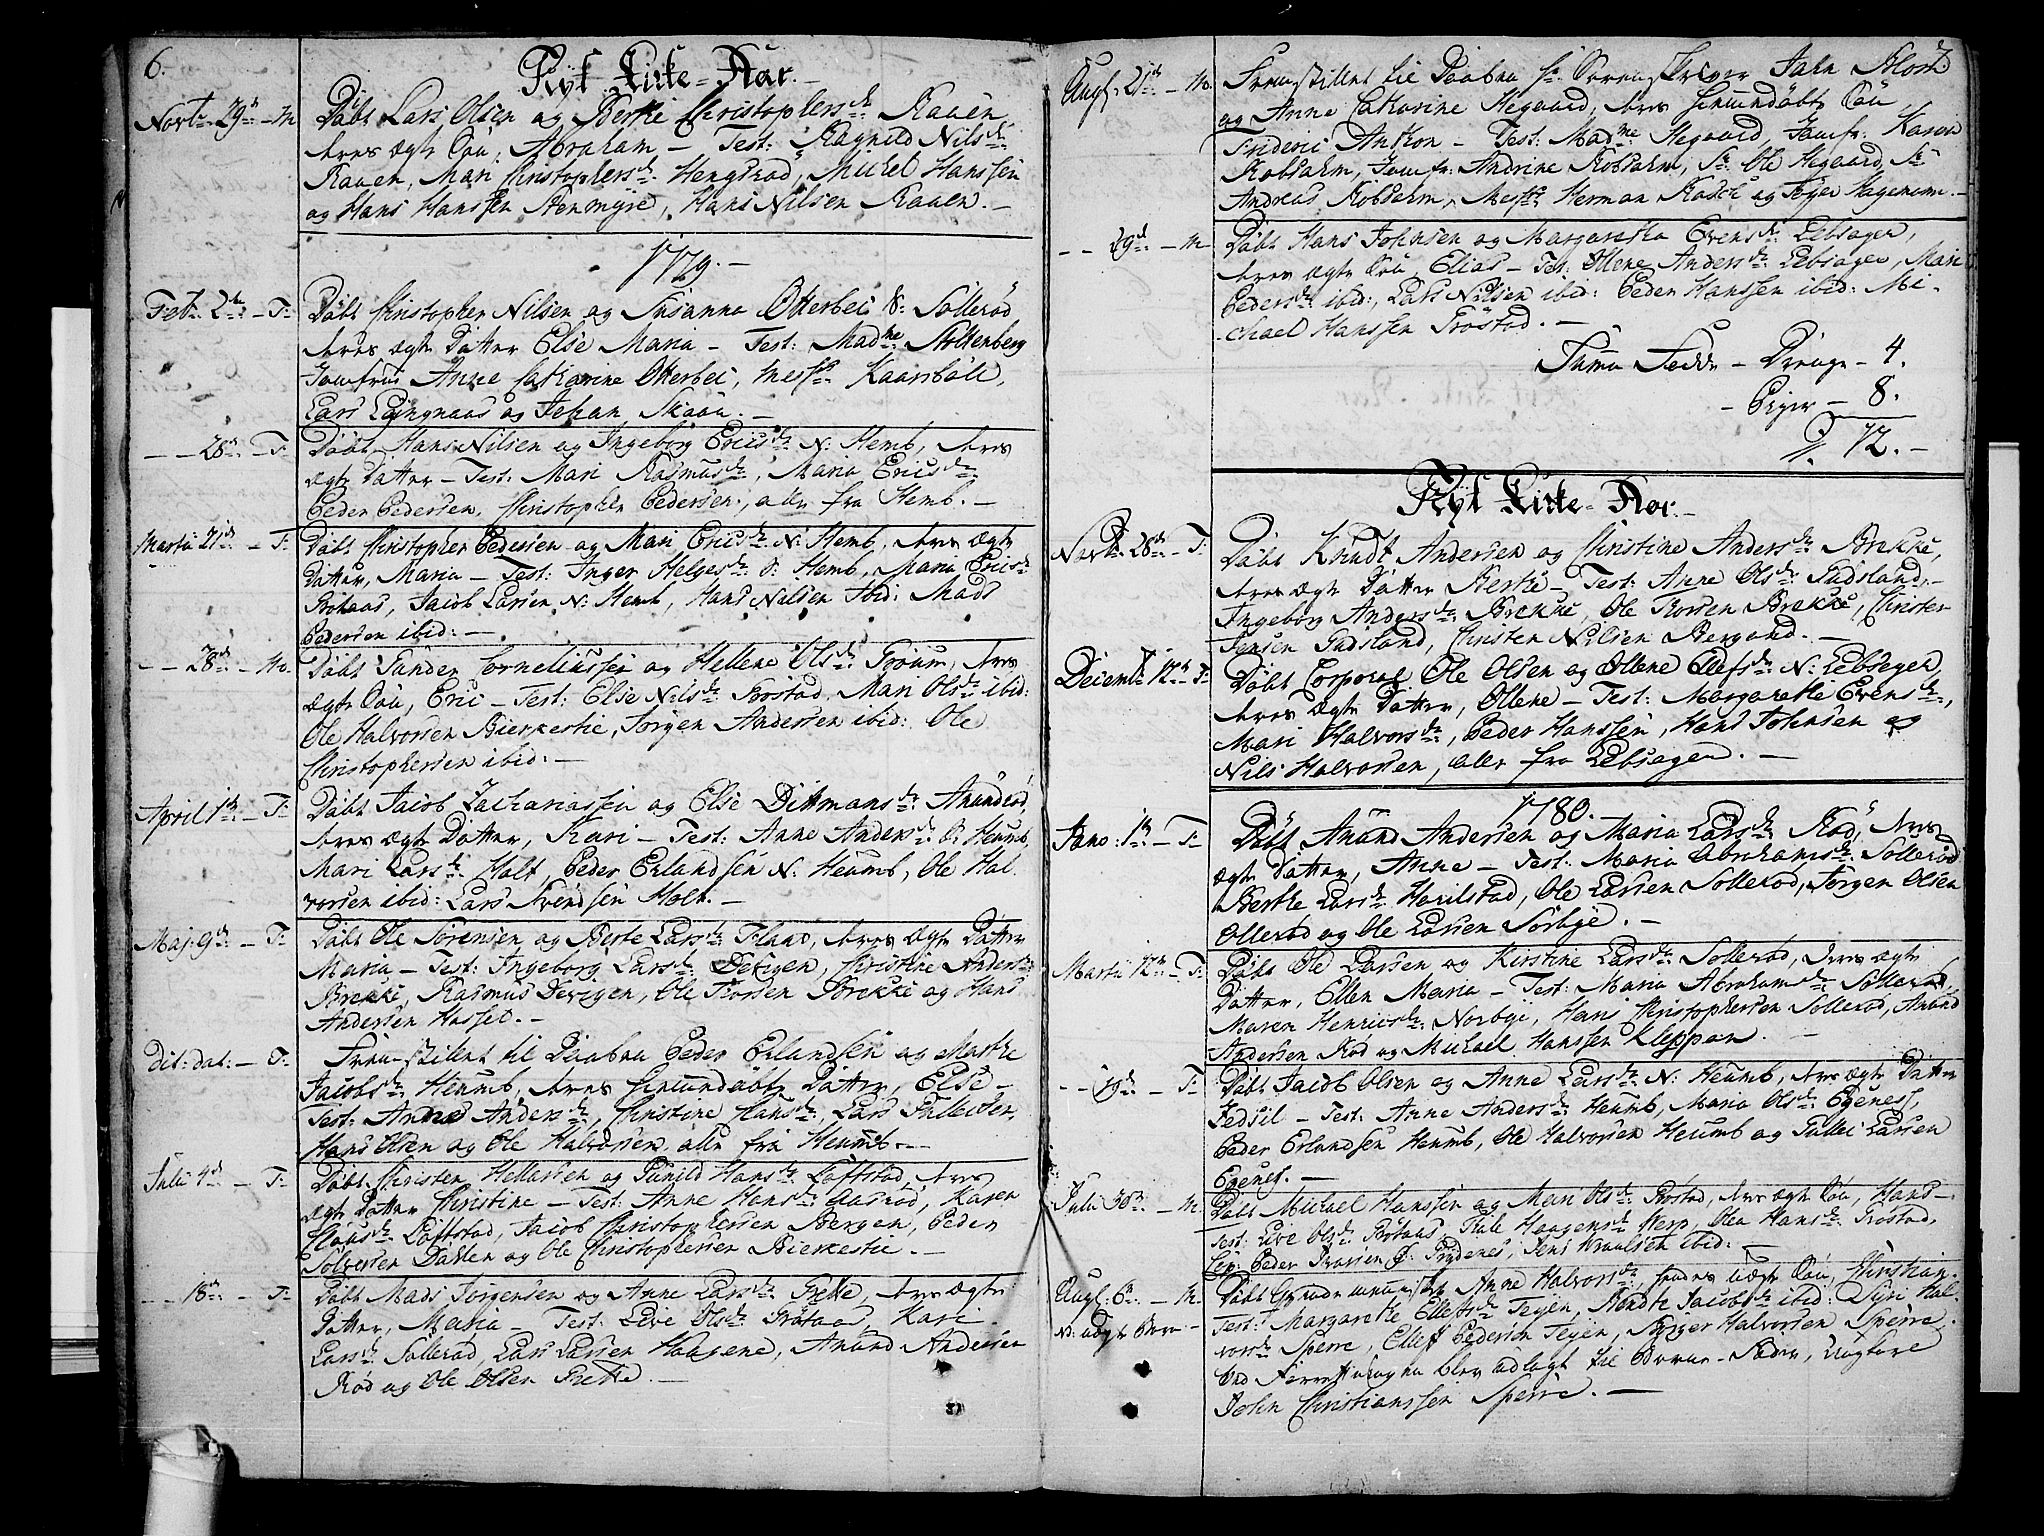 6.
Nyt Kirke-Aar.
Novbr: 29de - M Døbt Lars Olsen og Berthe Christophersdr: Raaen,
deres ægte Søn, Abraham - Test: Ragnild Nilsdr:
Raaen, Mari Christophersdr: Hengsrød, Michel Hanssen
og Hans Hanssen Stenmyre, Hans Nilsen Raaen. -
1779. -
Feb: 2de - F: Døbt Christopher Nilsen og Susanna Otterbei S: Sollerød
deres ægte Datter Else Maria - Test: Madme Stoltenberg
Jomfru Anne Catharine Otterbei, Mesr
Lars og Johan -
- - 28de - F: Døbt Hans Nilsen og Ingeborg Ericsdr: N: Hemb, deres
ægte Datter - Test: Mari Rasmusdr:, Maria Ericsdr:
Peder Pedersen, Christopher Pedersen, alle fra Hemb. -
Martii 21de - F: Døbt Christopher Pedersen og Mari Ericsdr: N: Hemb, deres ægte
Datter, Maria - Test: Inger Helgesdr: S: Hemb, Maria Ericsdr:
Jacob Larsen N: Hemb, Hans Nilsen Ibid: Mads
Pedersen ibid: -
- - 28de - M. Døbt Gunder Corneliussen og Hellene Olsdr: deres
ægte Søn, Eric - Test: Else Nilsdr: Trostad, Mari Olsdr: ibid:
Ole Halvorsen Bierkestie, Jørgen Andersen ibid: Ole
Christophersen ibid: -
April 1te - F: Døbt Jacob Zachariassen og Else Dittmansdr: Amundrød,
deres ægte Datter, Kari - Test: Anne Andersdr: S: Heumb,
Mari Larsdr: Holt, Peder Erlandsen N: Heumb, Ole Hal-
vorsen ibid: Lars Svendsen Holt. -
Maj. 9de - F: Døbt Ole Sørensen og Berte Larsdr: deres ægte Datter
Maria - Test: Ingeborg Larsdr: Devigen, Christine Andersdr:
Brekke, Rasmus Devigen, Ole Thorsen Brekke og Hans
Andersen Hasset. -
Dit: dat: - F: Fremstillet til Daaben Peder Erlandsen og Marthe
Jacobsdr: Heumb, deres hiemdøbte Datter, Else -
Test: Anne Andersdr:, Christine Hansdr:, Lars
Hans Olsen og Ole Halvorsen alle fra Heumb. -
Julii 4de - F: Døbt Christen Hellessen og Gunild Hansdr: Løffstad, deres
ægte Datter Christine - Test: Anne Hansdr: Aasrød, Karen
Clausdr: Løffstad, Jacob Christophersen Bergen, Peder
Sølvesen Dahlen og Ole Christophersen Bierkestie. -
- - 18de - F: Døbt Mads Jørgensen og Anne Larsdr: Frette, deres ægte
Datter, Maria - Test: Live Olsdr: Kari
Larsdr: Sollerød, Lars Larsen Haagene, Amund Andersen
Rød og Ole Olsen Frette. -
7
Augs: 21de - M. Fremstillet til Daaben Sr: Sorenskriver John
og Anne Catharine Hegaard, deres hiemdøbte Søn,
Frideric Anthon - Test: Madme Hegaard, Jomfr: Karen
Robsahm, Jomfr: Andrine Robsahm, Sr: Ole Hegaard, Sr:
Andreas Robsahm, Mesr Herman Rasch og Teyer Hagemann. -
- - 29de - M Døbt Hans Johnsen og Margaretha Evensdr: Lebsagen,
deres ægte Søn, Elias - Test: Ollene Andersdr: Lebsagen, Mari
Pedersdr: ibid:, Lars Nilsen ibid: Peder Hanssen ibid: Mi-
chael Hanssen Trøstad. -
Suma Fødde - Drenge - 4.
- Piger - 8.
12. -
Nyt Kirke-Aar. -
Novbr: 28de - F: Døbt Knudt Andersen og Christine Andersdr: Brekke,
deres ægte Datter Berthe - Test: Anne Olsdr: Gudsland, -
Ingeborg Andersdr: Brekke, Ole Thorsen Brekke, Christen
Jensen Gudsland, Christen Nilsen Bergend. -
Decembr: 12te F: Døbt Corporal Ole Olsen og Ollene Ellefsdr: N: Lebsagen
deres ægte Datter, Ollene - Test: Margarethe Evensdr:,
Mari Halvorsdr:, Peder Hanssen, Hans Johnsen og
Nils Halvorsen, alle fra Lebsagen. -
1780.
Jano: 1te - F: Døbt Amund Andersen og Maria Larsdr: Rød, deres
ægte Datter, Anne - Test: Maria Abrahamsdr: Sollerød
Berthe Larsdr: Harilstad, Ole Larsen Sollerød, Jørgen Olsen
Ollerød og Ole Larsen Sørbye. -
Martii 12te - F: Døbt Ole Larsen og Kirstine Larsdr: Sollerød, deres ægte
Datter, Ellen Maria - Test: Maria Abrahamsdr: Sollerød,
Maren Henricsdr: Norbye, Hans Christophersen Sollerød, Amund
Andersen Rød og Michael Hanssen Kleppan. -
- - 19de - F: Døbt Jacob Olsen og Anne Larsdr: N: Heumb, deres ægte Datter
Sedsil - Test: Anne Andersdr: Heumb, Maria Olsdr: Egenes,
Peder Erlandsen Heumb, Ole Halvorsen Heumb og Tollef Larsen
Egenes. -
Julii 30te - M. Døbt Michael Hanssen og Mari Olsdr: Trøstad, deres ægte Søn, Hans -
Test: Live Olsdr: Haagensdr: Olea Hansdr: Trøstad,
Peder ibid: -
Augs: 6te - M. Døbt Anne Halvorsdr:, hendes uægte Søn, Christian.
N: uægte Barn - Test: Margarethe Ellefsdr: Teyen, Jacobsdr: ibid: Hal-
vorsdr: Sperre, Ellef Pedersen Teyen, Halvorsen Sperre.
Ved Forretningen blev udlagt til Barne-Fader, Ungkarl
John Christianssen Sperre. -